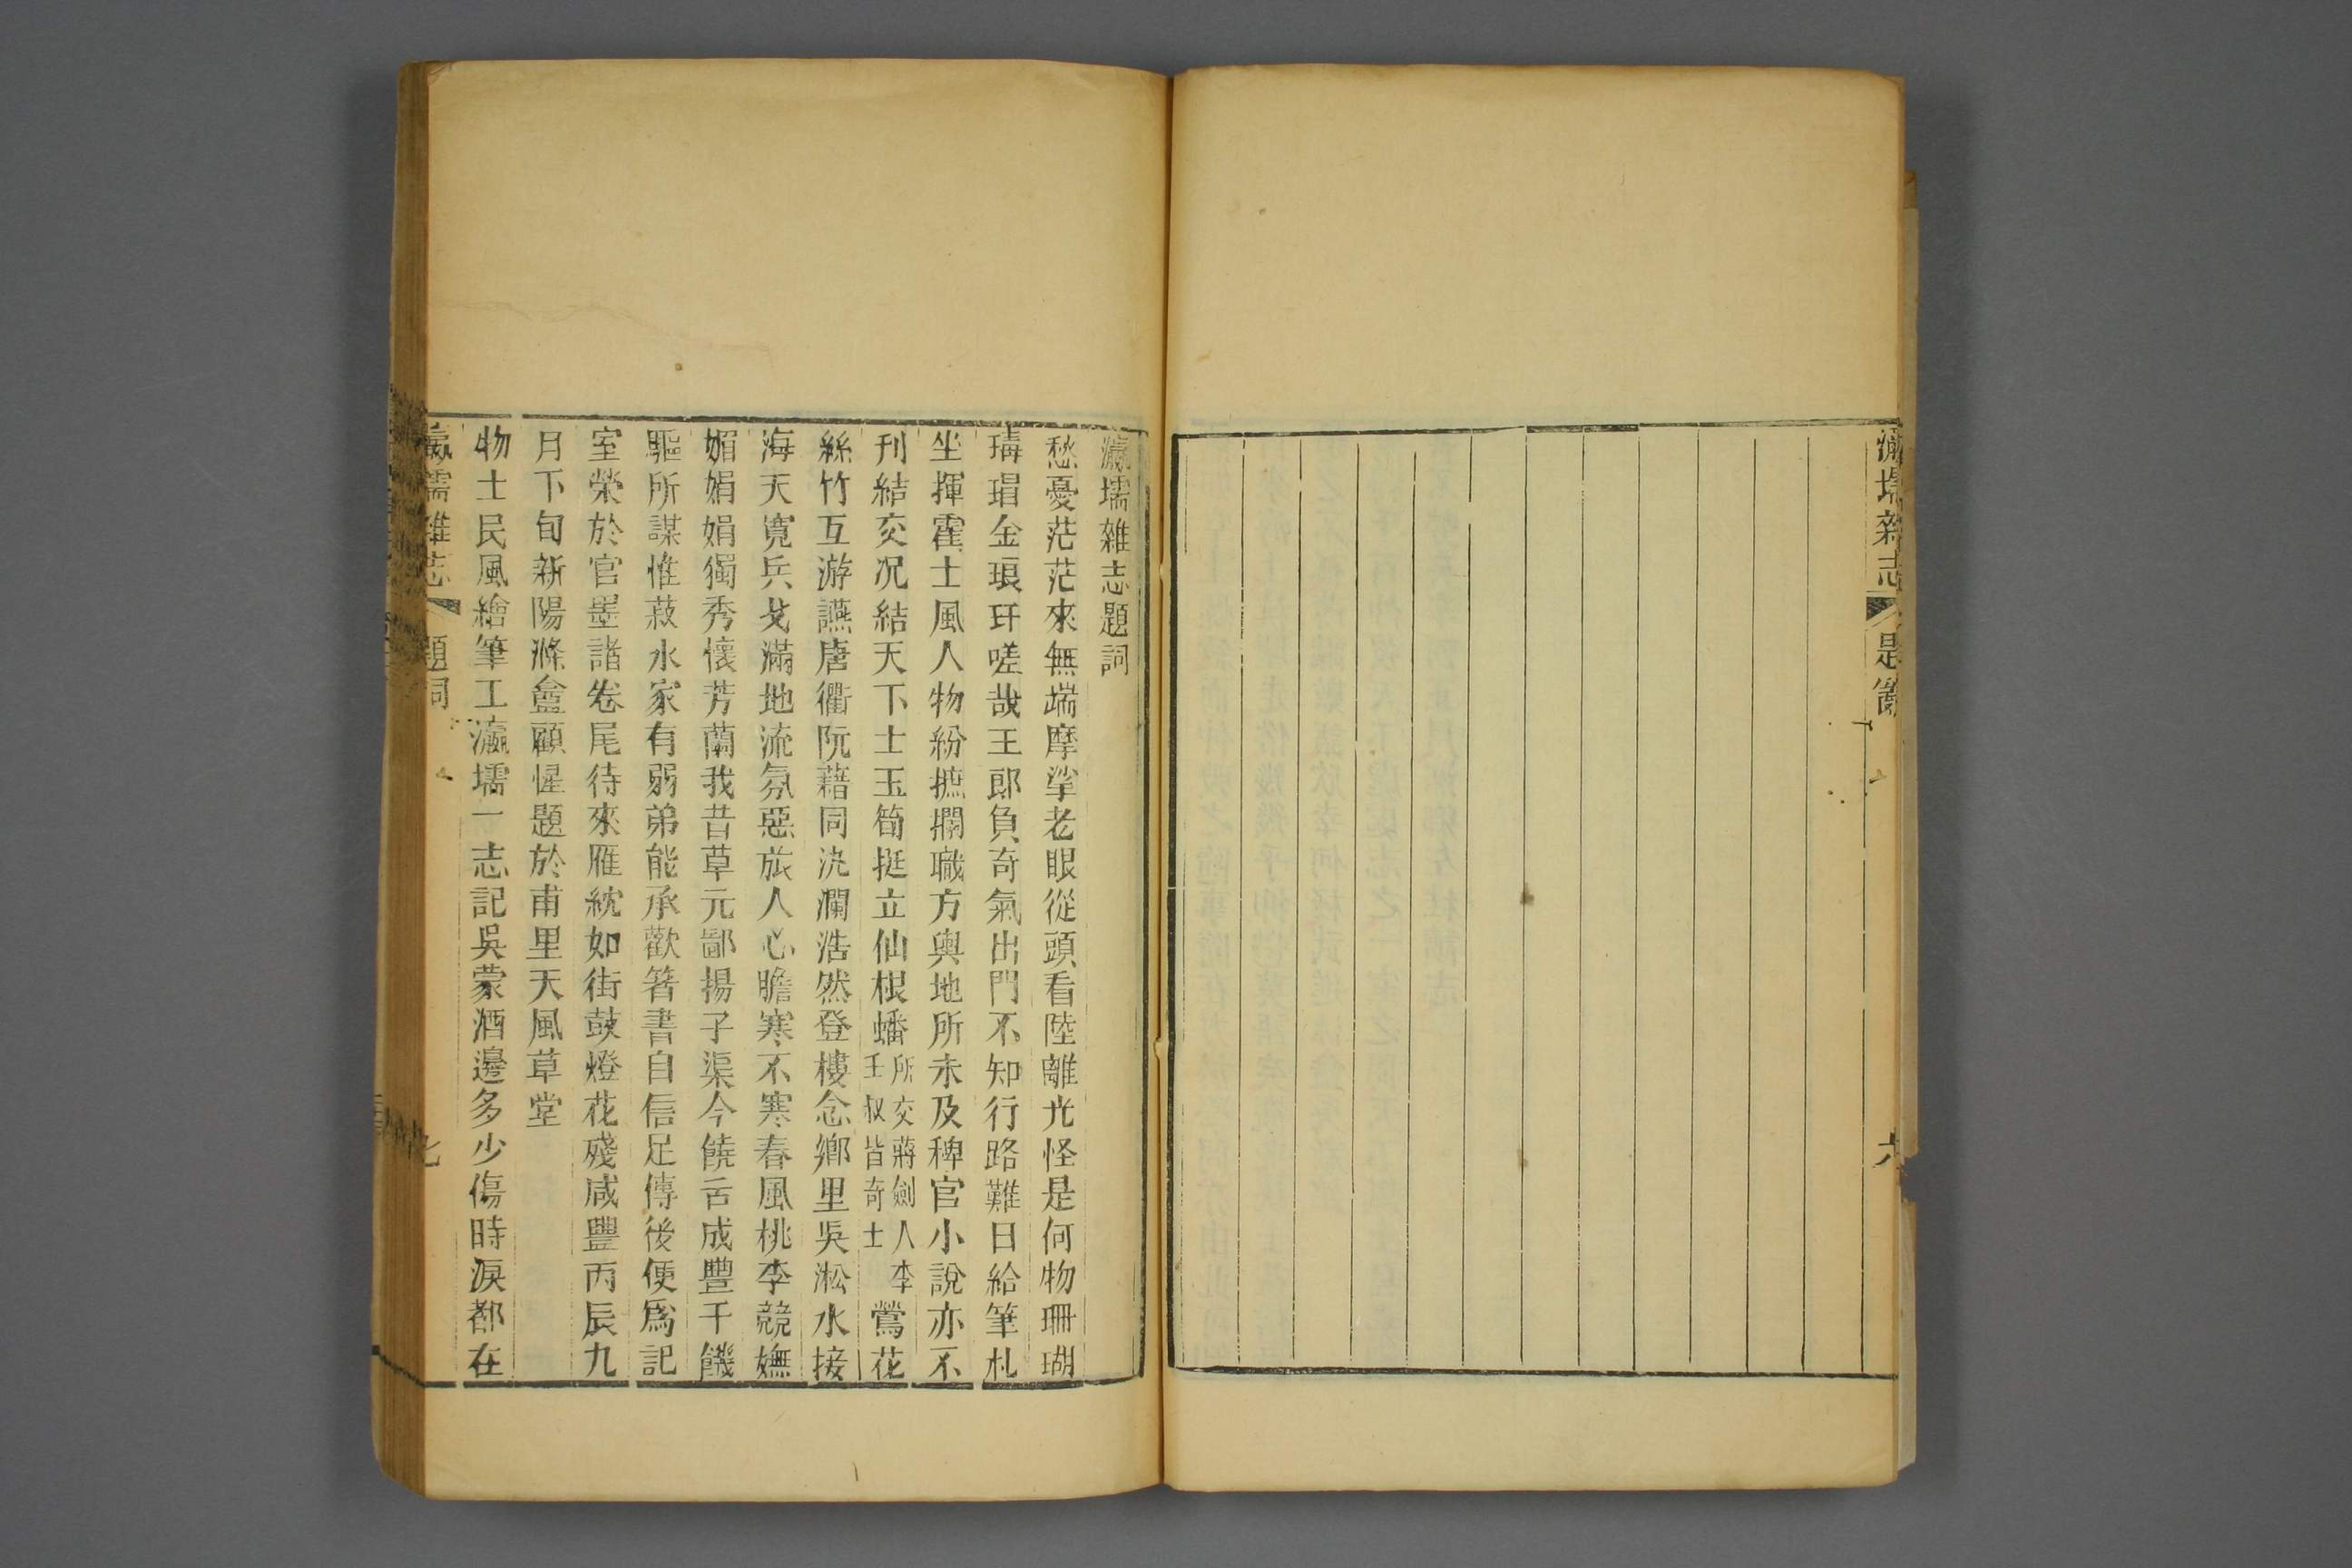 瀛壖雜志
六
瀛壖雜志題詞
愁憂茫茫來無端摩挲老眼從頭看陸離光怪是何物珊瑚
瑇瑁金琅玕嗟哉王郎負奇氣出門不知行路難日給筆札
坐揮霍土風人物紛摭攔職方輿地所未及稗官小說亦不
刊結交況結天下士玉筍挺立仙根蟠所交蔣劍人李壬叔皆奇士鶯花
絲竹互游讌唐衢阮藉同汍瀾浩然登樓念鄉里吳淞水接
海天寬兵戈滿地流氛惡旅人心膽寒不寒春風桃李競嫵
媚娟娟獨秀懷芳蘭我昔草元鄙揚子渠今饒舌成豐干饑
驅所謀惟菽水家有弱弟能承歡箸書自信足傳後便爲記
室榮於官墨諸卷尾待來雁紞如街鼓燈花殘咸豐丙辰九
月下旬新陽滌盦顧惺題於甫里天風草堂
物土民風繪筆工瀛壖一志記吳蒙酒邊多少傷時淚都在
瀛壖雜志
題詞
七